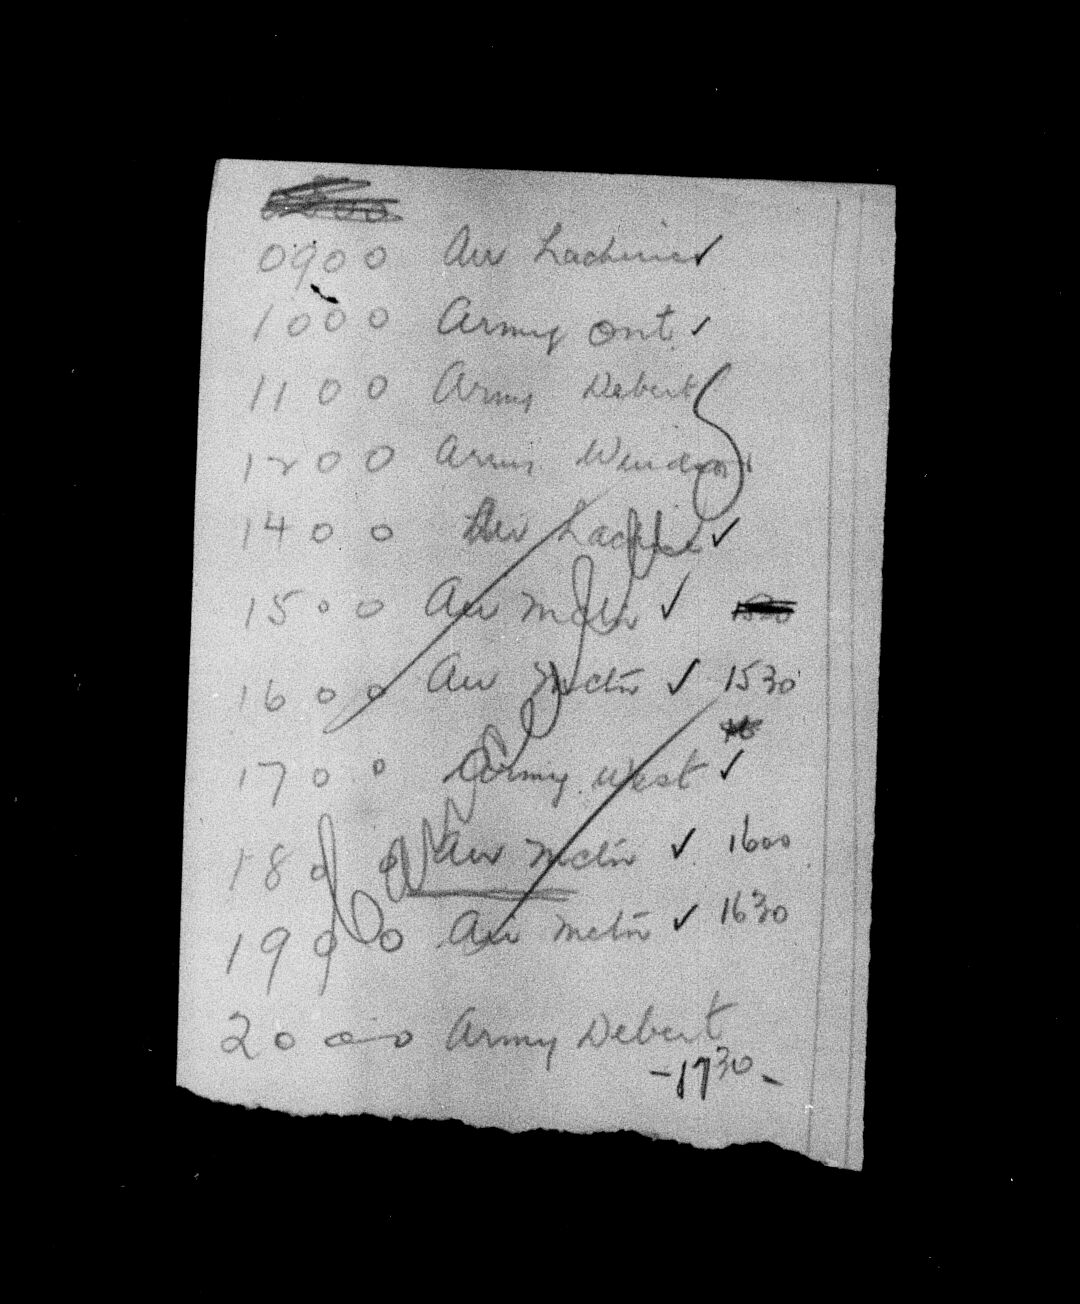 0900 Air Lachine ✓
1000 Army Ont. ✓
1100 Army Debert
1200 Army Windsor
1400 Air Lachine ✓
1500 Air Mctn ✓
1600 Air Mctn ✓ 1530
1700 Army West ✓
1800 Air Mctn ✓ 1600
1900 Air Mctn ✓ 1630
2000 Army Debert
-1730-